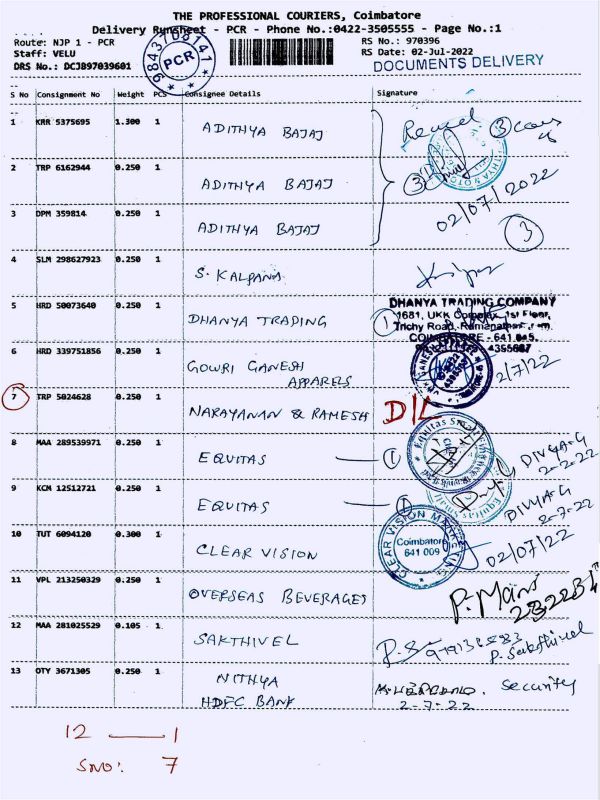 THE PROFESSIONAL COURIERS, Coimbatore
Delivery Runsheet - PCR - Phone No.:0422-3505555 - Page No.:1
Route: NJP 1 - PCR
RS No.: 970396
Staff: VELU
RS Date: 02-Jul-2022
DRS No.: DCJB97039601
DOCUMENTS DELIVERY
9843708141
PCR
S No Consignment No Weight PCS Consignee Details Signature
1 KRR 5375695 1.300 1 ADITHYA BAJAJ
2 TRP 6162944 0.250 1 ADITHYA BAJAJ
3
02/07/2022
3 DPM 359814 0.250 1 ADITHYA BAJAJ
3
4 SLM 298627923 0.250 1 S. KALPANA
5 HRD 50073640 0.250 1 DHANYA TRADING
1
DHANYA TRADING COMPANY
1681, UKK Complex, 1st Floor,
Trichy Road,
COIMBATORE - 641 045.
6 HRD 339751856 0.250 1 GOWRI GANESH
APPARELS
2/7/22
7 TRP 5024628 0.250 1 NARAYANAN & RAMESH D/L
8 MAA 289539971 0.250 1 EQUITAS 1
DIVYA-G
2-7-22
9 KCM 12512721 0.250 1 EQUITAS 1
DIVYA-G
2-7-22
10 TUT 6094120 0.300 1 CLEAR VISION
CLEAR VISION MARKETING
Coimbatore
641 009
02/07/22
11 VPL 213250329 0.250 1 OVERSEAS BEVERAGES
P. Mani
12 MAA 281025529 0.105 1 SAKTHIVEL
P. Sakthivel
13 OTY 3671305 0.250 1 NITHYA
HDFC BANK
Security
2-7-22
12 — 1
SNO: 7